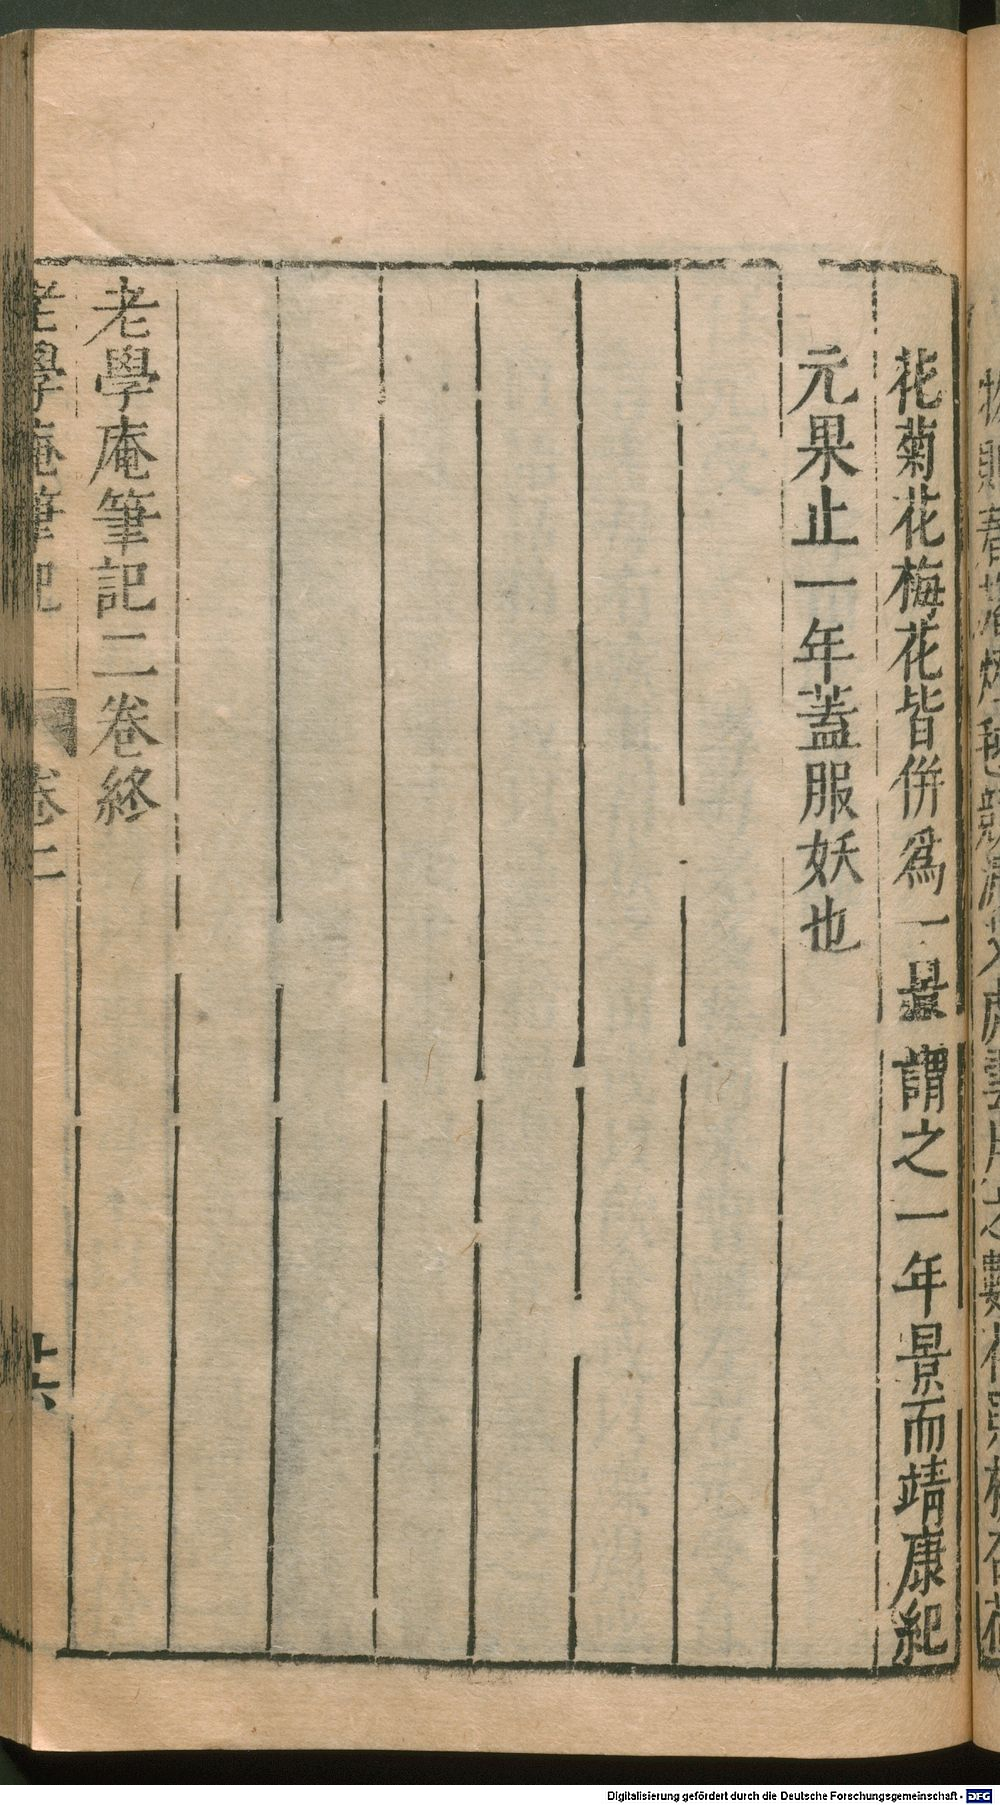 花菊花梅花皆併爲一景謂之一年景而靖康紀
元果止一年蓋服妖也
老學庵筆記二卷終
老學庵筆記
卷二
廿六
Digitalisierung gefördert durch die Deutsche Forschungsgemeinschaft - DFG